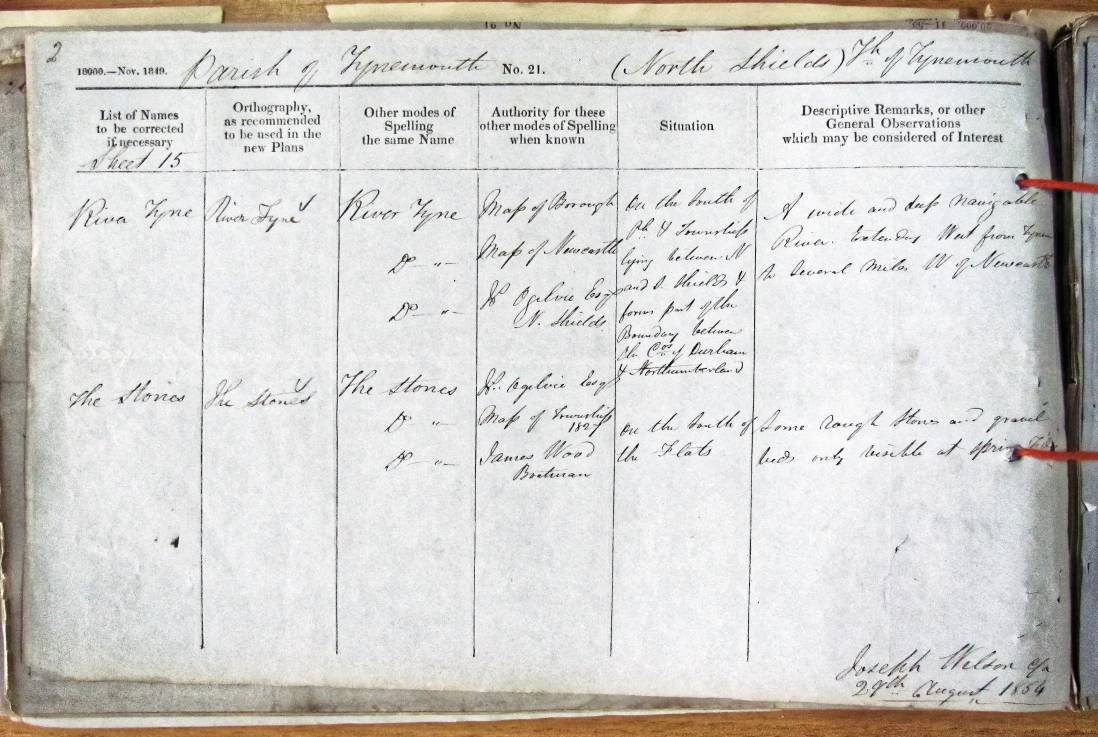 2
18900.—Nov. 1849. Parish of Tynemouth No. 21. (North Shields) Th of Tynemouth
List of Names
to be corrected
if necessary
Sheet 15
Orthography,
as recommended
to be used in the
new Plans
Other modes of
Spelling
the same Name
Authority for these
other modes of Spelling
when known
Situation
Descriptive Remarks, or other
General Observations
which may be considered of Interest
River Tyne
River Tyne
River Tyne
Do "
Do "
Map of Borough
Map of Newcastle
Ogilvie Esqr
N. Shields
On the South of
Ph & Township
lying between N
and S. Shields &
forms part of the
Boundary between
the Cos of Durham
& Northumberland
A wide and deep navigable
River. Extending West from
to several miles W of Newcastle
The Stones
The Stones
The Stones
Do "
Do "
Ogilvie Esqr
Map of Township
1827
James Wood
Boatman
On the South of
the Flats
Some rough Stones and gravel
beds only visible at Spring
Joseph Wilson
August 1854